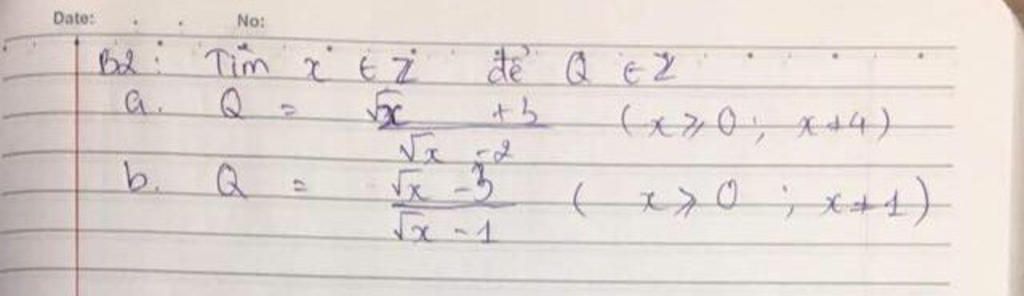 Date: No:
B2: Tìm x ∈ Z để Q ∈ Z
a. Q = (√x + 3)/(√x - 2) (x ≥ 0; x ≠ 4)
b. Q = (√x - 3)/(√x - 1) (x ≥ 0; x ≠ 1)